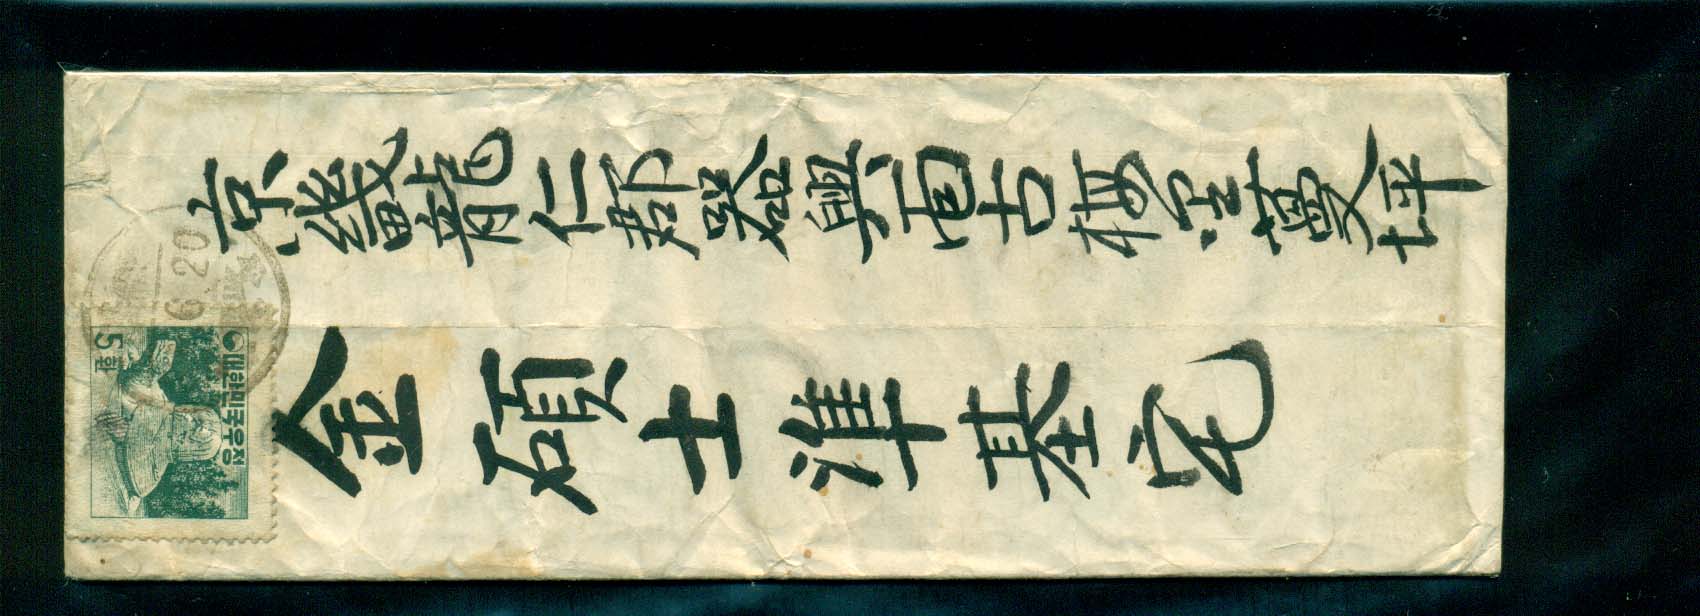 京畿龍仁郡器興面古梅坪
金碩士準基宅
대한민국우정
5환
6 20